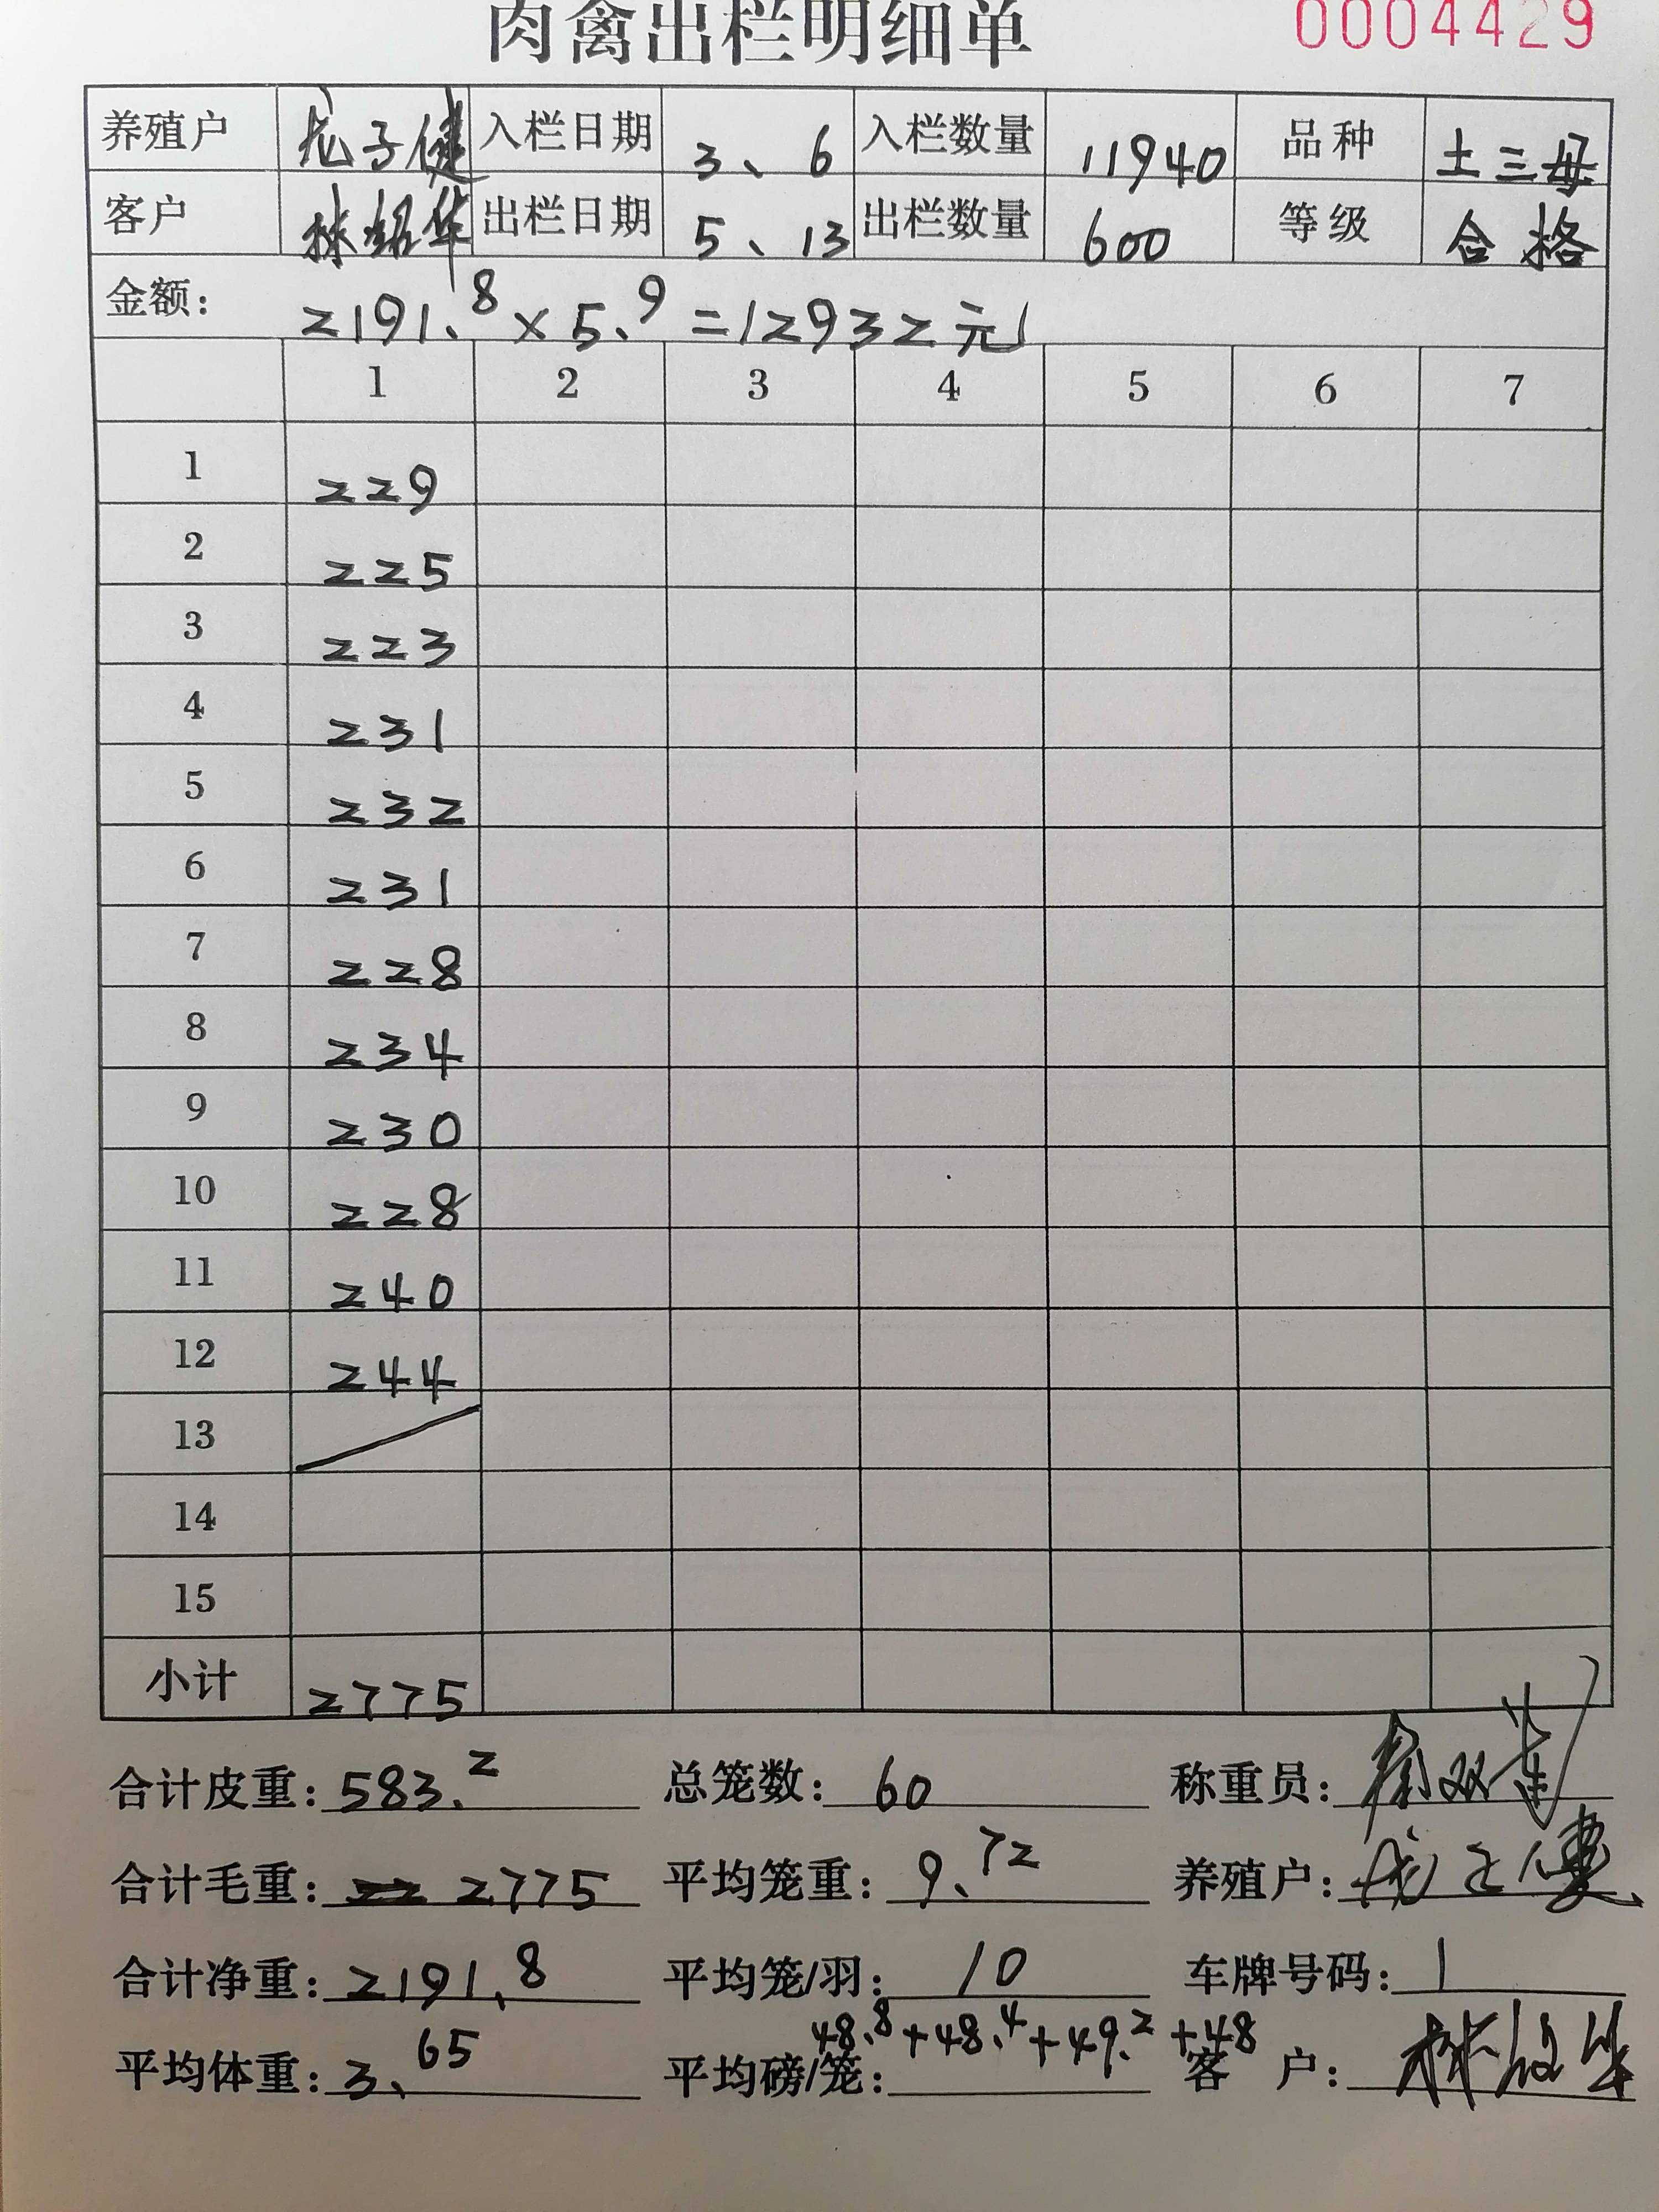 肉禽出栏明细单 0004429
养殖户 龙子健 入栏日期 3、6 入栏数量 11940 品种 土三母
客户 林绍华 出栏日期 5、13 出栏数量 600 等级 合格
金额: 2191.8×5.9=12932元
1 2 3 4 5 6 7
1 229
2 225
3 223
4 231
5 232
6 231
7 228
8 234
9 230
10 228
11 240
12 244
13
14
15
小计 2775
合计皮重: 583.2 总笼数: 60 称重员:
合计毛重: 2775 平均笼重: 9.72 养殖户:
合计净重: 2191.8 平均笼/羽: 10 车牌号码: 1
48.8+48.4+49.2+48
平均体重: 3.65 平均磅/笼: 客户: